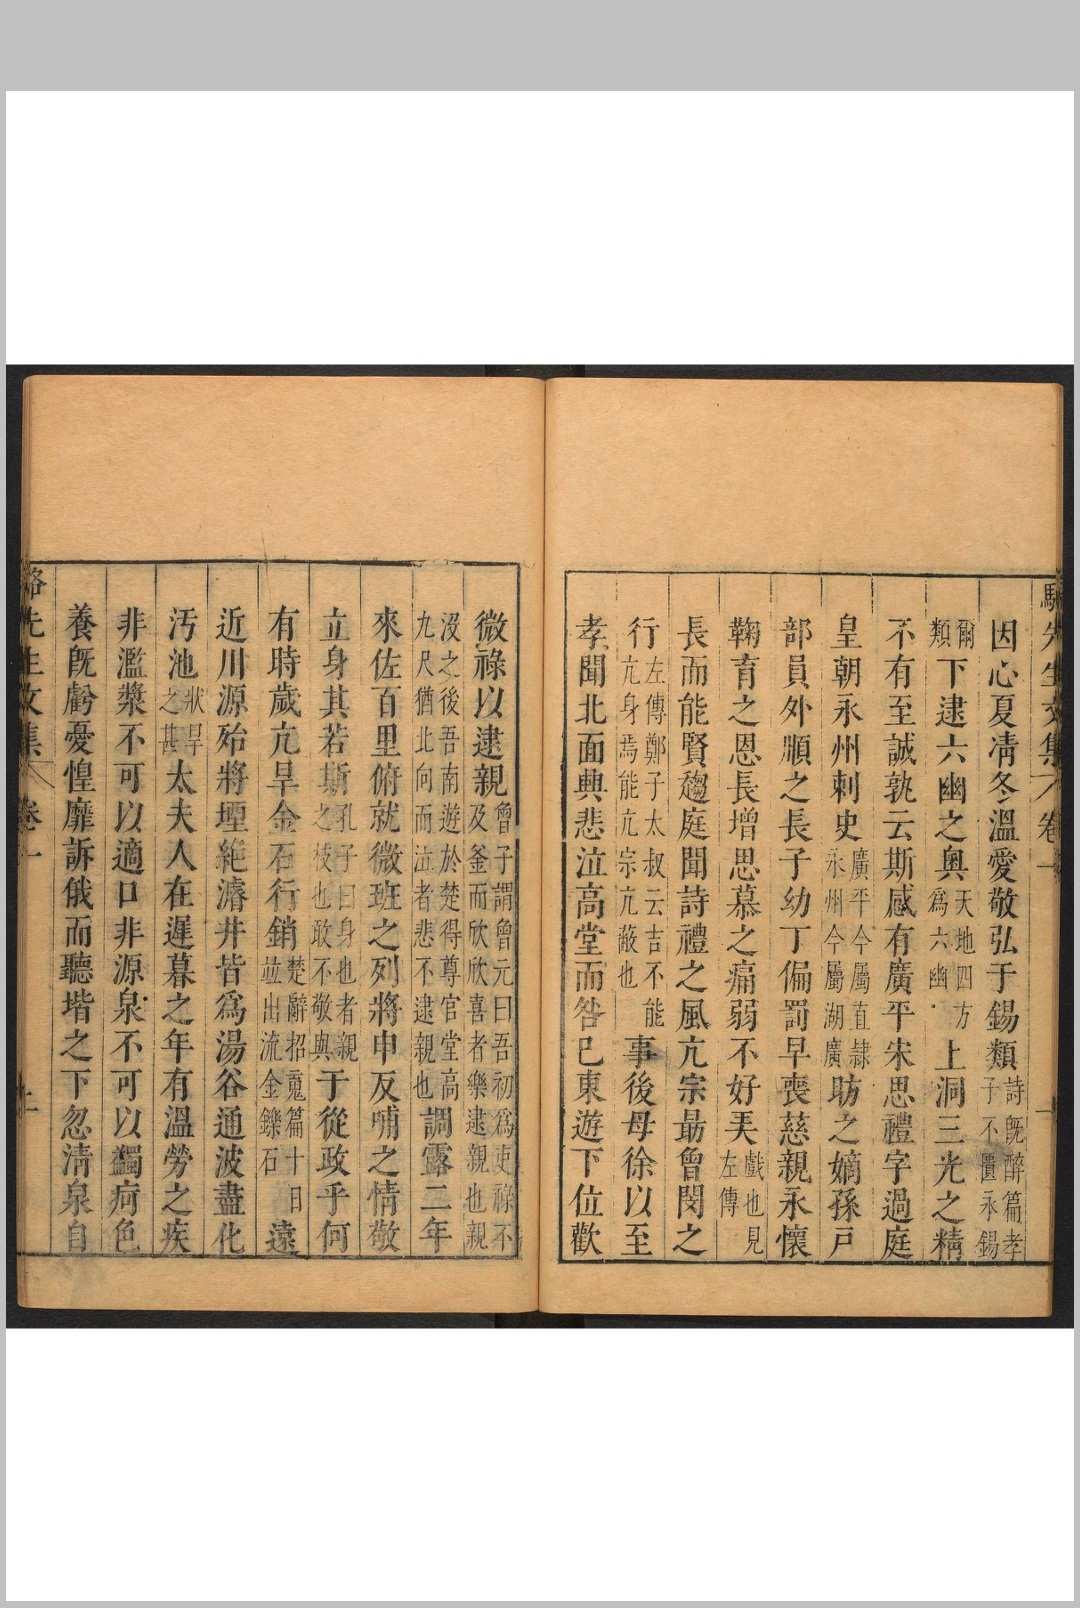 駱先生文集 卷一
因心夏凊冬溫愛敬弘于錫類詩旣醉篇孝子不匱永錫
爾類下逮六幽之奧天地四方爲六幽上洞三光之精
不有至誠孰云斯感有廣平宋思禮字過庭
皇朝永州刺史廣平今屬直隸永州今屬湖廣昉之嫡孫戸
部員外順之長子幼丁偏罰早喪慈親永懷
鞠育之恩長增思慕之痛弱不好弄戲也見左傳
長而能賢趨庭聞詩禮之風亢宗最曾閔之
行左傳鄭子太叔云吉不能亢身焉能亢宗亢蔽也事後母徐以至
孝聞北面興悲泣高堂而咎已東遊下位歡
微祿以逮親曾子謂魯元曰吾初爲吏祿不及釜而欣欣喜者樂逮親也親
沒之後吾南遊於楚得尊官堂高九尺猶北向而泣者悲不逮親也調露二年
來佐百里俯就微班之列將申反哺之情敬
立身其若斯孔子曰身也者親之枝也敢不敬與于從政乎何
有時歲亢旱金石行銷楚辭招䰟篇十日竝出流金鑠石遠
近川源殆將堙絶濬井皆爲湯谷通波盡化
汚池狀旱之甚太夫人在遲暮之年有溫勞之疾
非濫漿不可以適口非源泉不可以蠲疴色
養旣虧憂惶靡訴俄而聽堦之下忽淸泉自
駱先生文集 卷一